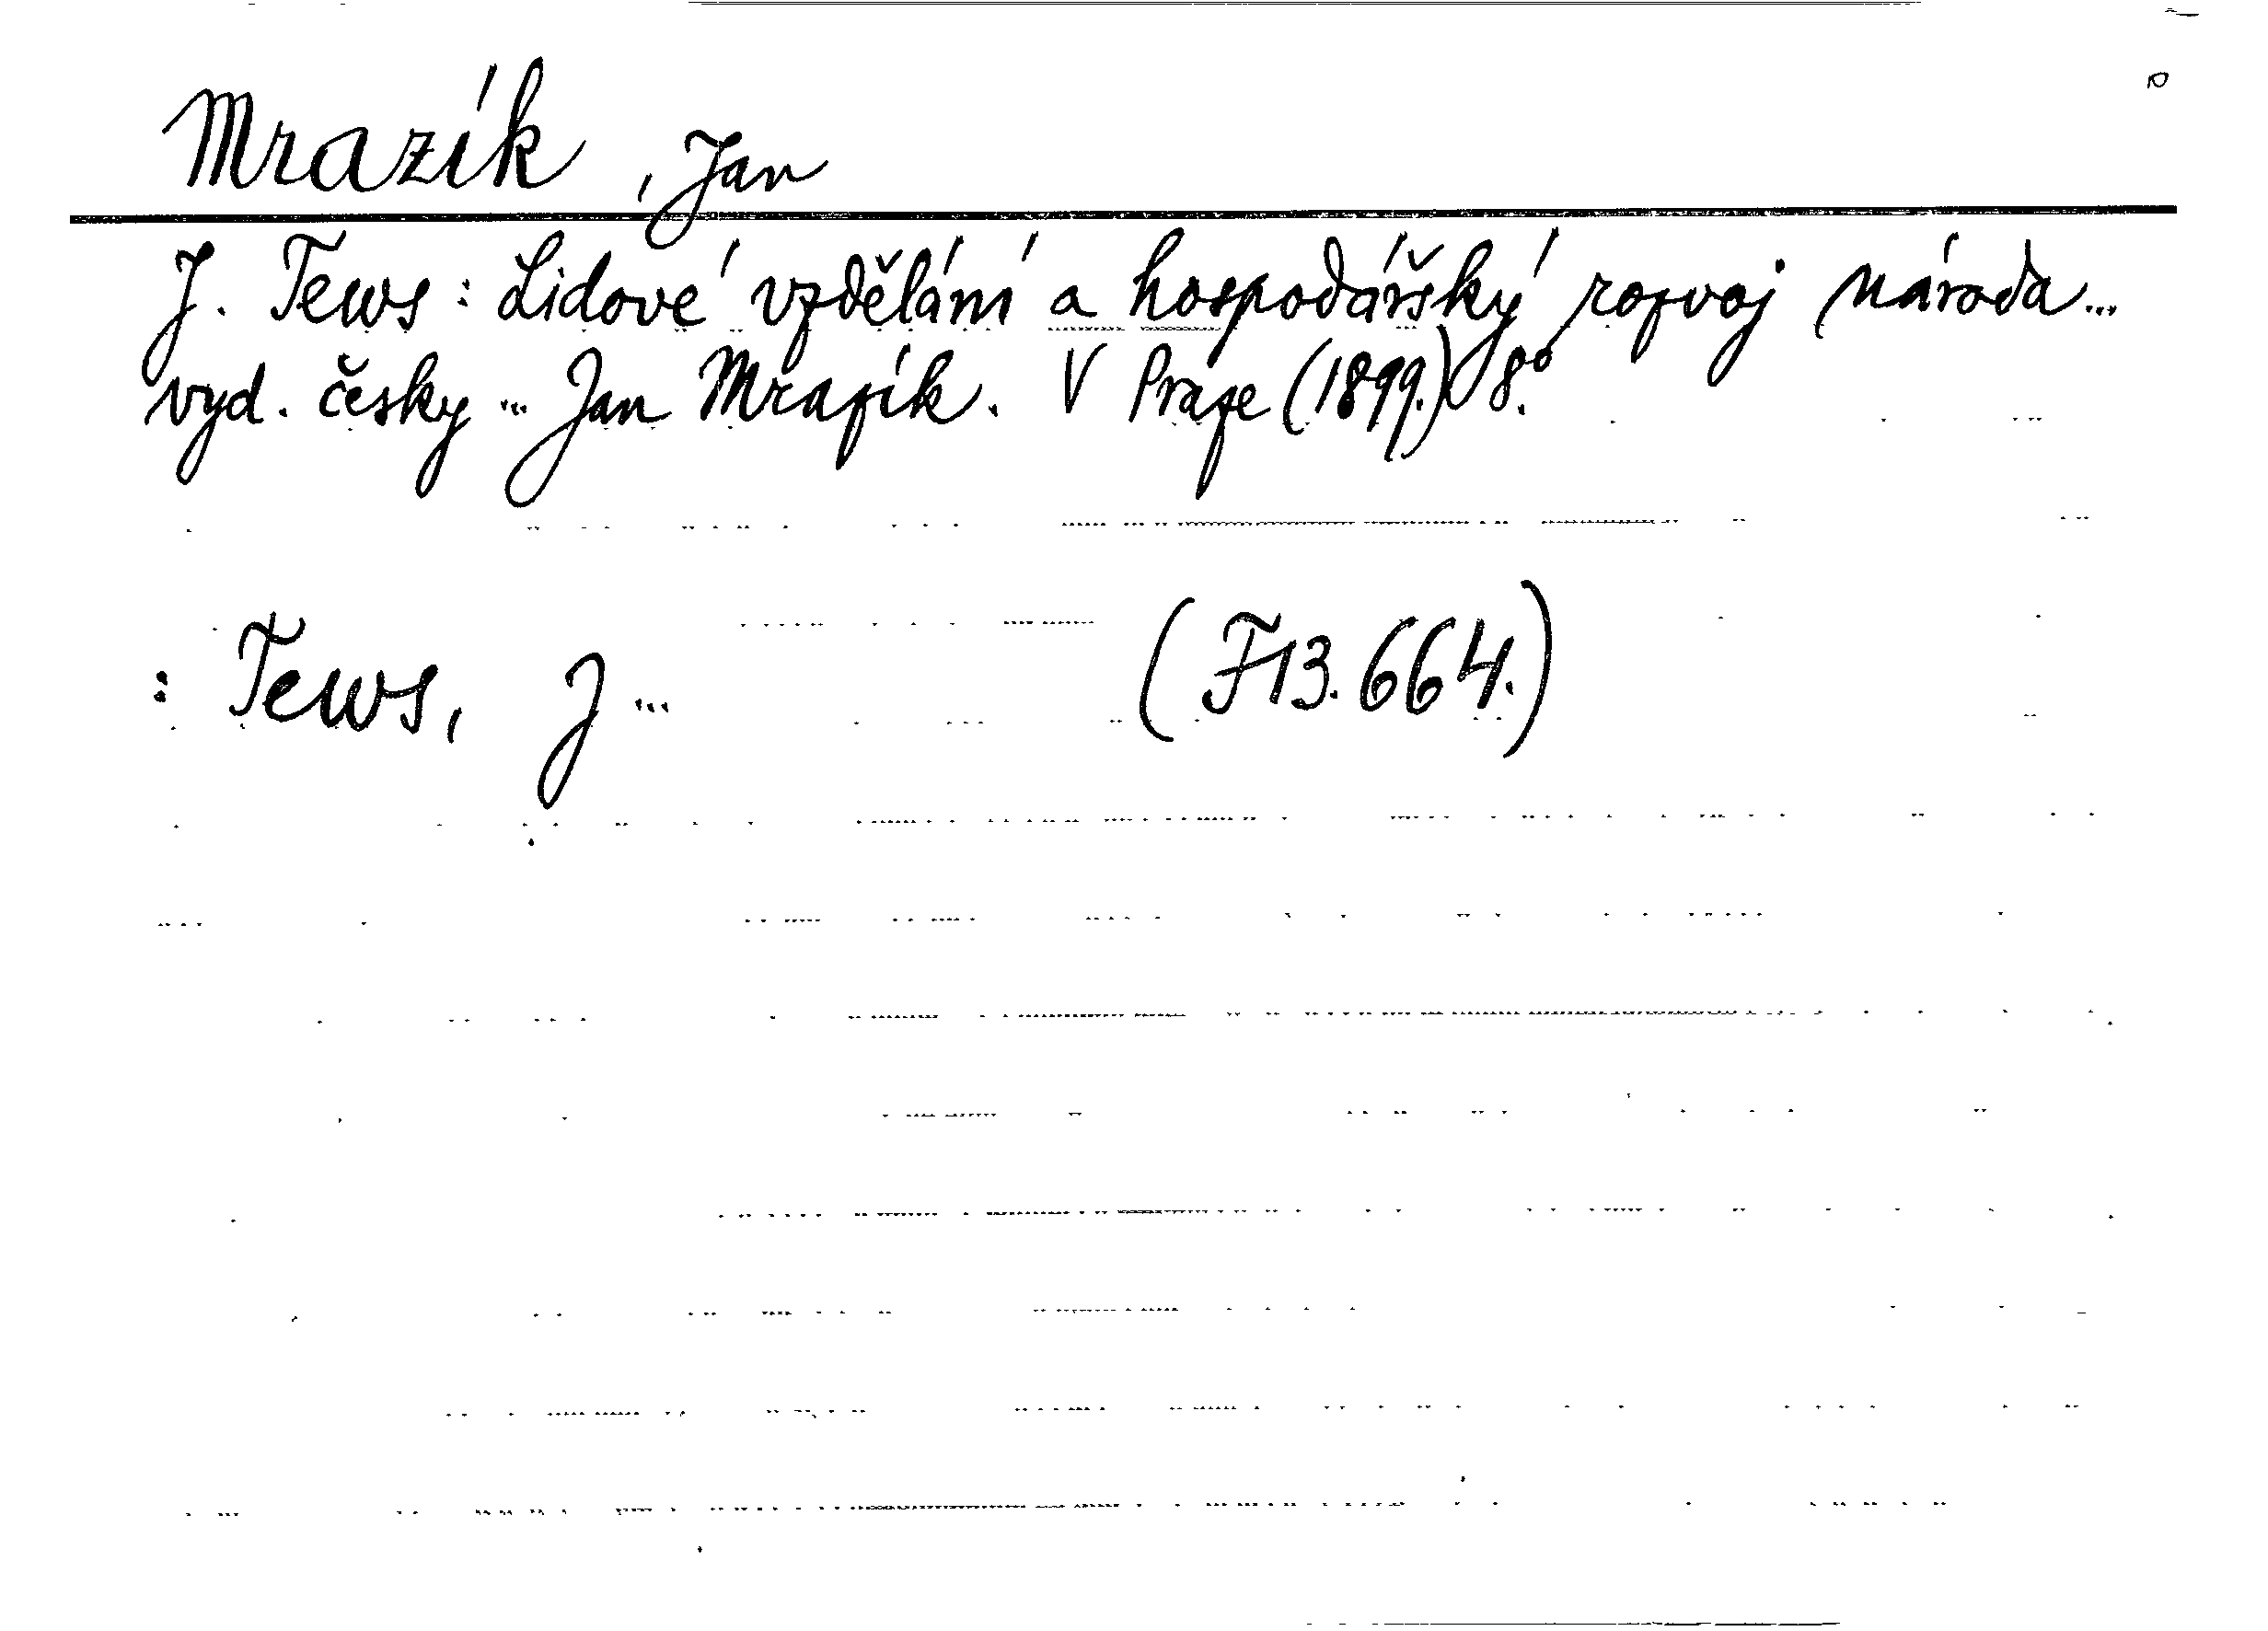 Mrazík, Jan
J. Tews: Lidové vzdělání a hospodářský rozvoj národa...
vyd. česky... Jan Mrazík. V Praze (1899.) 8.º
: Tews, J...   (F13.664.)